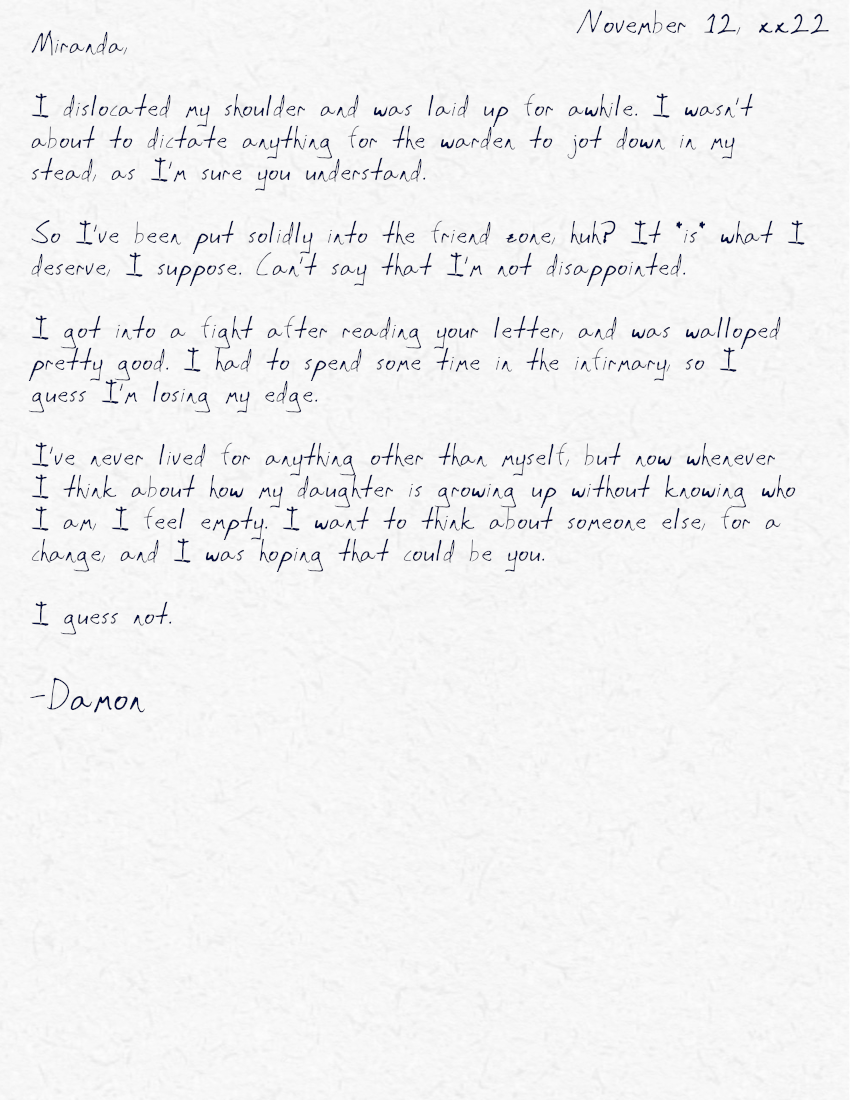 November 12, xx22
Miranda,
I dislocated my shoulder and was laid up for awhile. I wasn't
about to dictate anything for the warden to jot down in my
stead, as I'm sure you understand.
So I've been put solidly into the friend zone, huh? It *is* what I
deserve, I suppose. Can't say that I'm not disappointed.
I got into a fight after reading your letter, and was walloped
pretty good. I had to spend some time in the infirmary, so I
guess I'm losing my edge.
I've never lived for anything other than myself, but now whenever
I think about how my daughter is growing up without knowing who
I am, I feel empty. I want to think about someone else, for a
change, and I was hoping that could be you.
I guess not.
-Damon